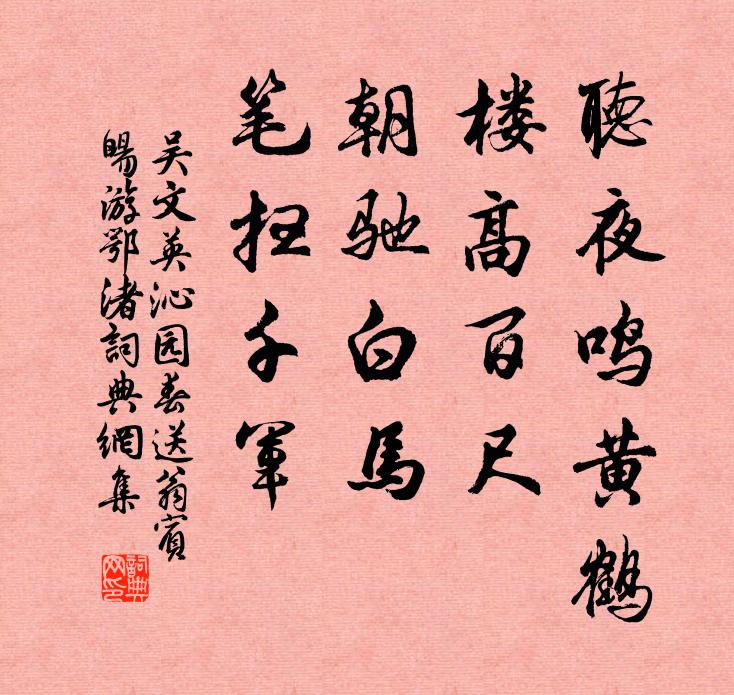 聽夜鸣黄鶴
楼高百尺
朝驰白馬
笔扫千軍
吴文英沁园春送翁賓
暘游鄂渚詞典網集
詞典
网印